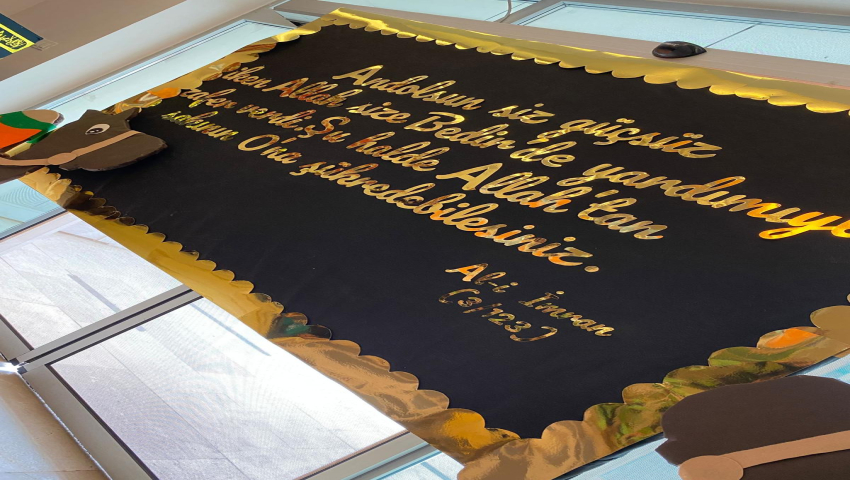 Andolsun siz güçsüz
iken Allah size Bedir'de yardımıyla
zafer verdi. Şu halde Allah'tan
sakının O'na şükredebilesiniz.
Al-i İmran
(3/123)